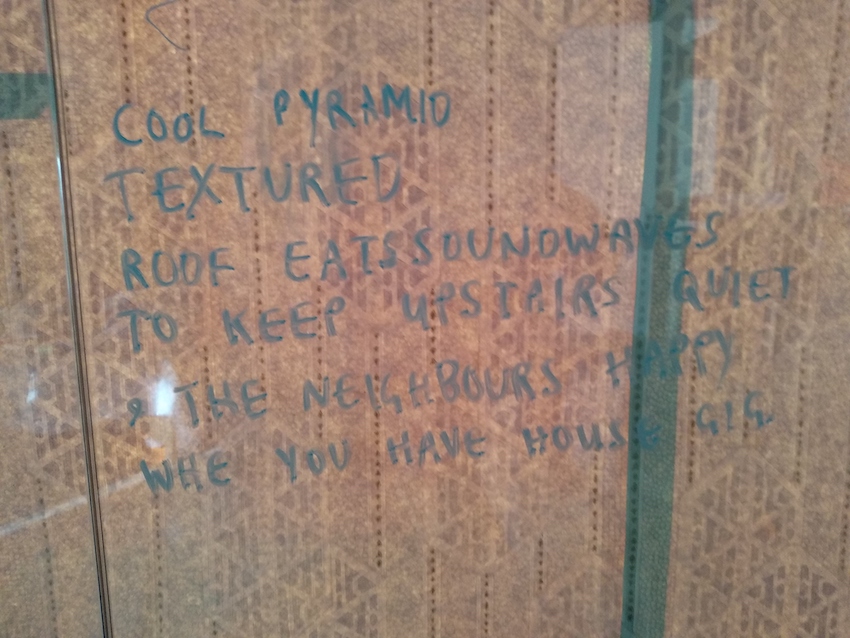 COOL PYRAMID
TEXTURED
ROOF EATSSOUNDWAVES
TO KEEP UPSTAIRS QUIET
& THE NEIGHBOURS HAPPY
WHE YOU HAVE HOUSE GIG